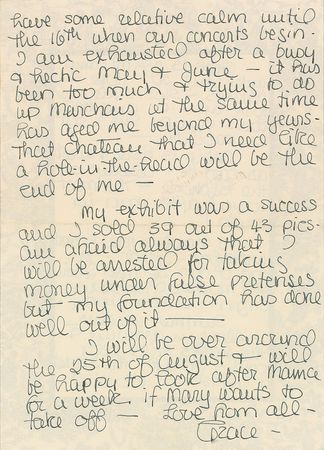 have some relative calm until
the 16th when our concerts begin.
I am exhausted after a busy
& hectic May & June — it has
been too much & trying to do
up Marchais at the same time
has aged me beyond my years-
that chateau that I need like
a hole-in-the-head will be the
end of me —
My exhibit was a success
and I sold 39 out of 43 pics-
am afraid always that I
will be arrested for taking
money under false pretenses
but my foundation has done
well out of it —
I will be over around
the 25th of August & will
be happy to look after
for a week if Mary wants to
take off — Love from all -
Grace -